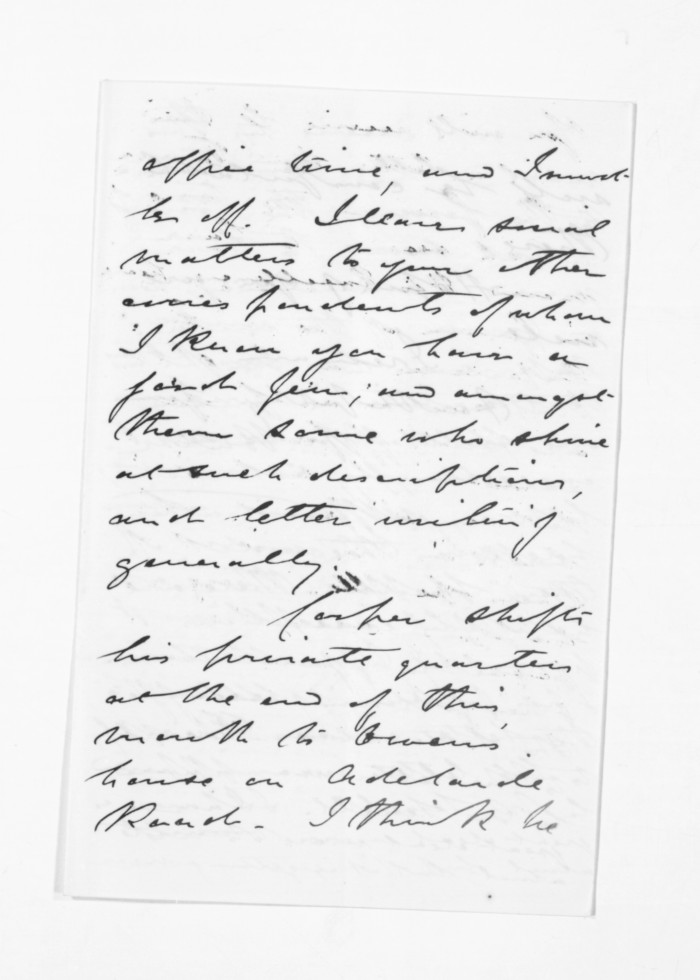 office time, and I must
be off. I leave social
matters to your other
correspondents of whom
I know you have a
good few; and amongst
them some who shine
at such descriptions,
and letter writing
generally.
Cooper shifts
his private quarters
at the end of this
month to
house on Adelaide
Road. I think he